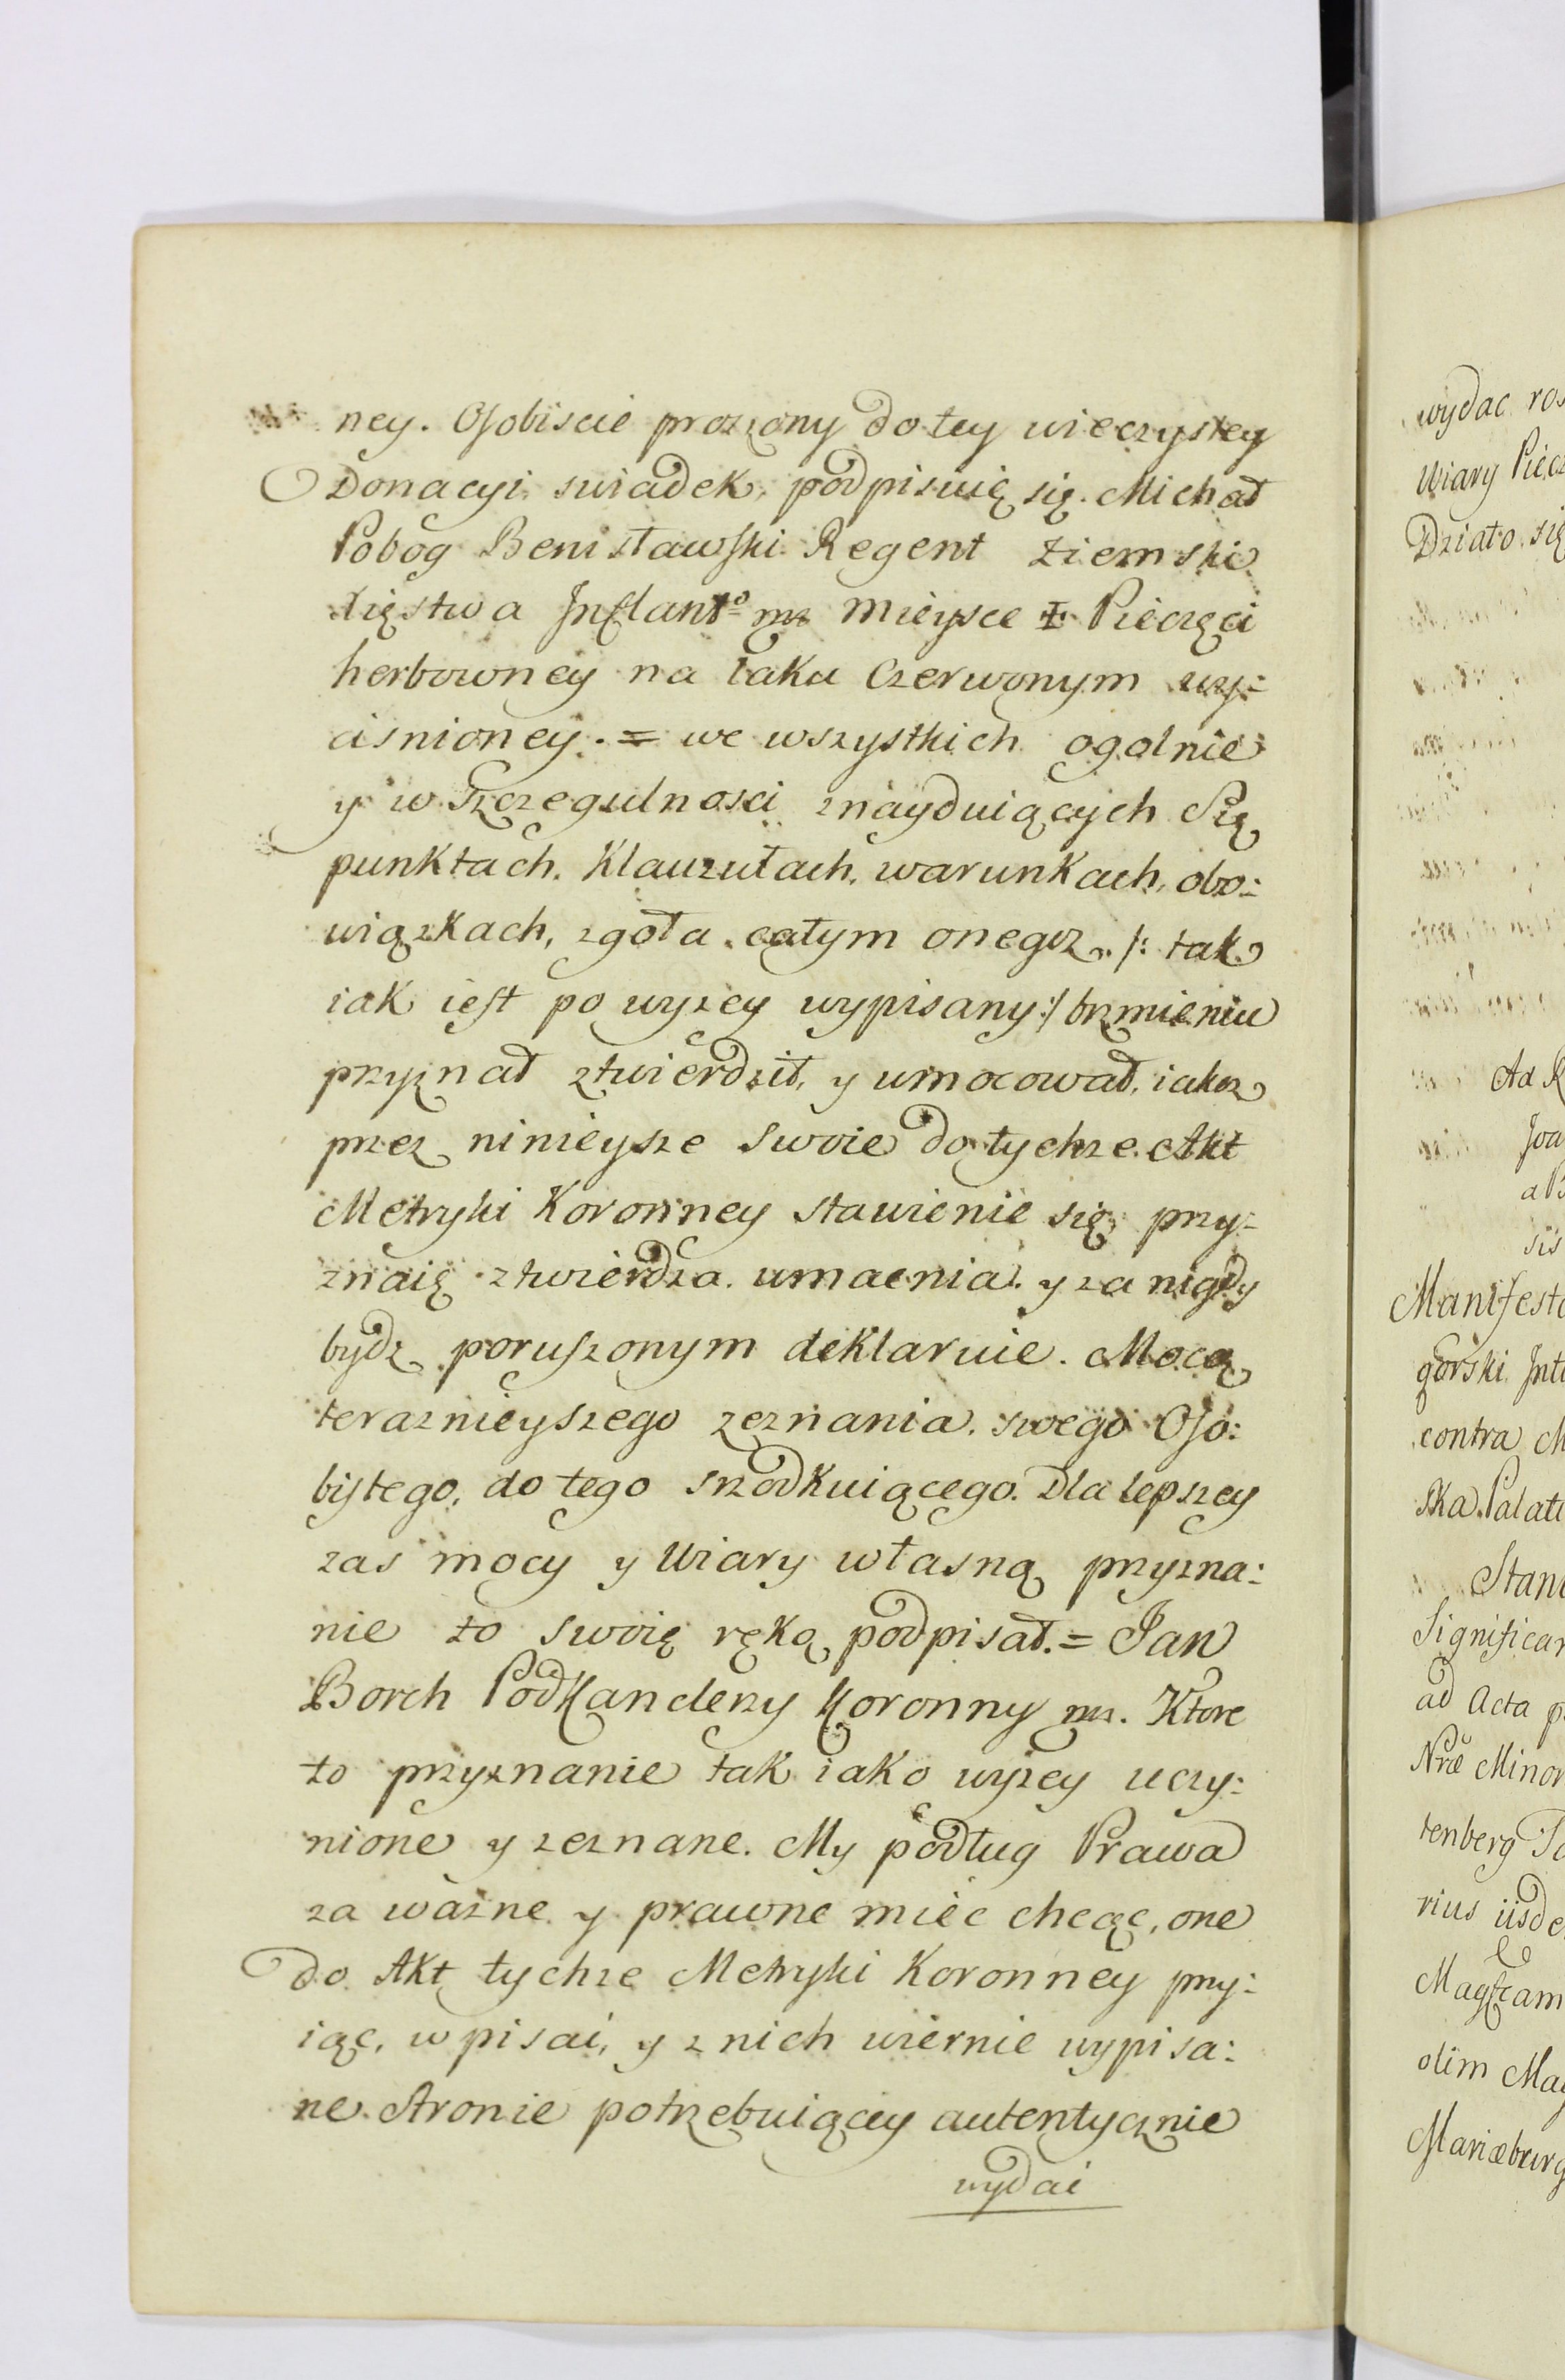 ney. Osobiscie proszony do tey wieczystey
Donacyi swiadek, podpisuię się. Michał
Pobog Benisławski Regent Ziemski
Xięstwa Inflantº mz Mieysce Ɨ Pieczęci
herbowney na laku Czerwonym wy:
cisnioney. = we wszystkich ogolnie
y w Szczegulnosci znayduiących Się
punktach. Klauzułach. warunkach, obo:
wiązkach, zgoła całym onegoz /: tak
iak iest powyzey wypisany :/ brzmieniu
przyznał ztwierdził, y umocował, iakoz
przez ninieysze Swoie do tychze Akt
Metryki Koronney stawienie się przy:
znaię ztwierdza. umacnia. y za nigdy
bydz poruszonym deklaruie. Mocą
teraznieyszego zeznania. swego Oso:
bistego, do tego srzodkuiącego. Dla lepszey
zas mocy y Wiary własną przyzna:
nie to swoię ręką podpisał. = Jan
Borch Podkanclerzy Koronny mz. Ktore
to przyznanie tak iako wyzey uczy:
nione y zeznane. My podług Prawa
za wazne y prawne miec chcąc, one
do Akt tychze Metryki Koronney przy:
iąc, wpisai, y z nich wiernie wypisa:
ne. Stronie potrzebuiącey autentycznie
wydai
wydac ros
Wiary Piecz
Działo się
Ad R
Joa
a B
sis
Manifesta
gorski Int
contra M
ska Palati
Stani
Significan
ad Acta p
Nræ Minor
tenberg
rius iisde
Magfcam
olim Mag
Mariæburg